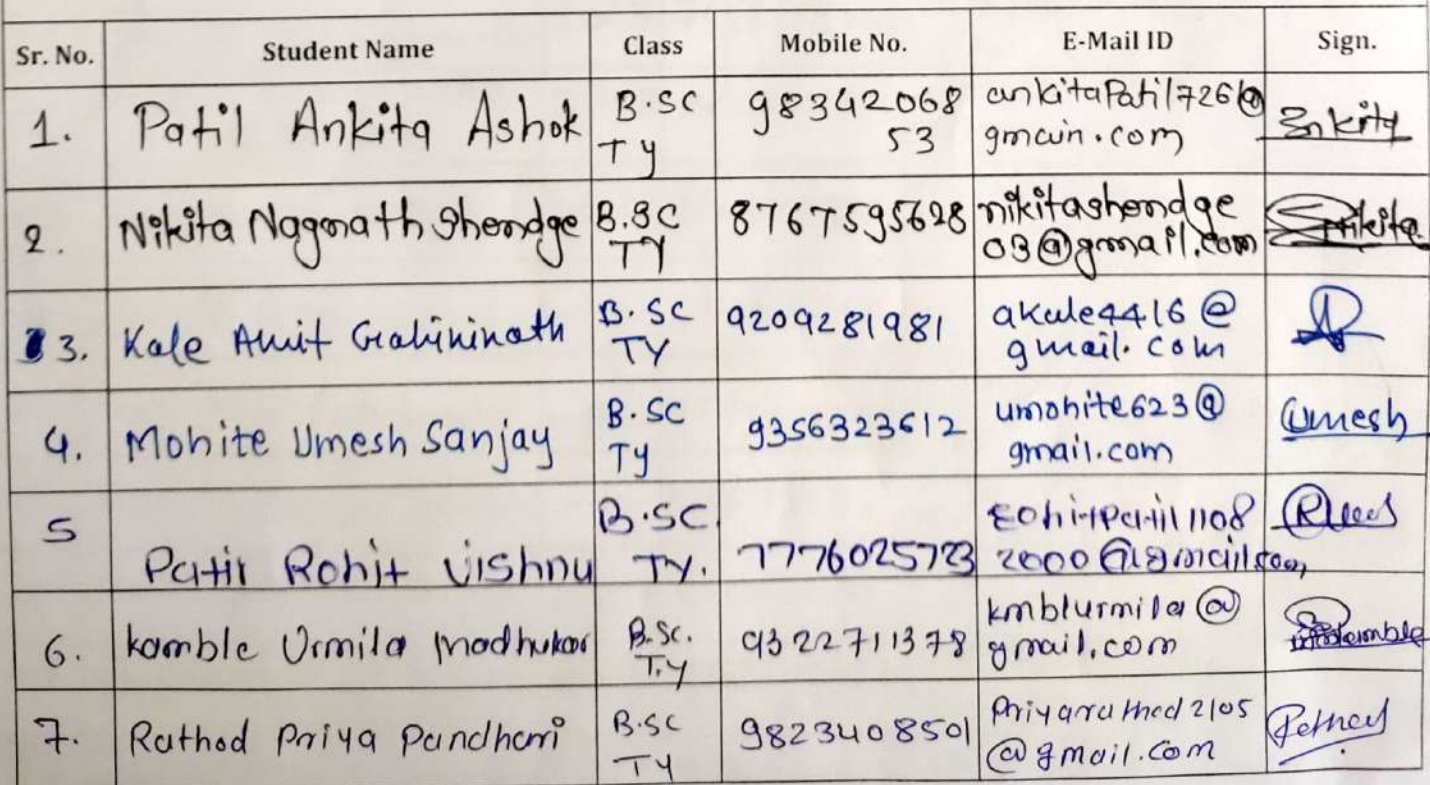 Sr. No. Student Name Class Mobile No. E-Mail ID Sign.
1. Patil Ankita Ashok B.SC TY 98342068 53 ankitaPatil726@ gmain.com Ankita
2. Nikita Nagnath Shendge B.SC TY 8767595628 nikitashendge 03@gmail.com Nikita
3. Kale Amit Gahininath B.SC TY 9209281981 akale4416@ gmail.com
4. Mohite Umesh Sanjay B.SC TY 9356323612 umohite623@ gmail.com Umesh
5 Patil Rohit Vishnu B.SC TY. 7776025723 rohitpatil1108 2000@gmail.com
6. Kamble Urmila Madhukar B.Sc. T.Y 9322711378 kmblurmila@ gmail.com
7. Rathod Priya Pandhari B.SC TY 9823408501 Priyarathod2105 @gmail.com